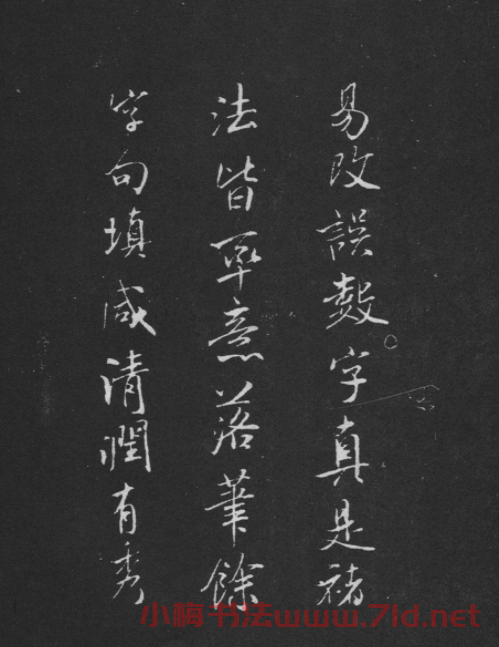 易改誤數字真是褚
法皆率意落筆餘
字句填咸清潤有秀
小楠书法www.7ld.net